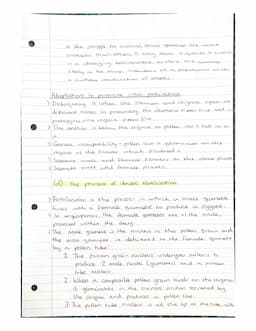 in the struggle for survival, some gametes are more
successful than others. It may allow a species to survive
in a changing environment, as there are
likely to be some members of a population with the
a suitable combination of alleles.
Adaptations to promote cross-pollination
> Dichogamy is when the stamen and stigma ripen at
different times. In protandry the stamens ripen first and in
protogyny the stigma ripen first.
> The anther is below the stigma so pollen can't fall on to
it.
> Genetic incompatibility - pollen can't germinate on the
stigma of the flower which produced it.
> Separate male and female flowers on the same plant.
> Separate male and female plants.
(d): the process of double fertilisation
> Fertilisation is the process in which a male gamete
fuses with a female gamete to produce a zygote.
> In angiosperms, the female gamete is in the ovule,
protected within the ovary.
> The male gamete is the nucleus in the pollen grain and
the male gamete is delivered to the female gamete
by a pollen tube.
1. The pollen grain nucleus undergoes mitosis to
produce 2 male nuclei (gametes) and a pollen
tube nucleus.
2. When a compatible pollen grain lands on the stigma,
it germinates in the sucrose solution secreted by
the stigma and produces a pollen tube.
3. The pollen tube nucleus is at the tip of the tube, with